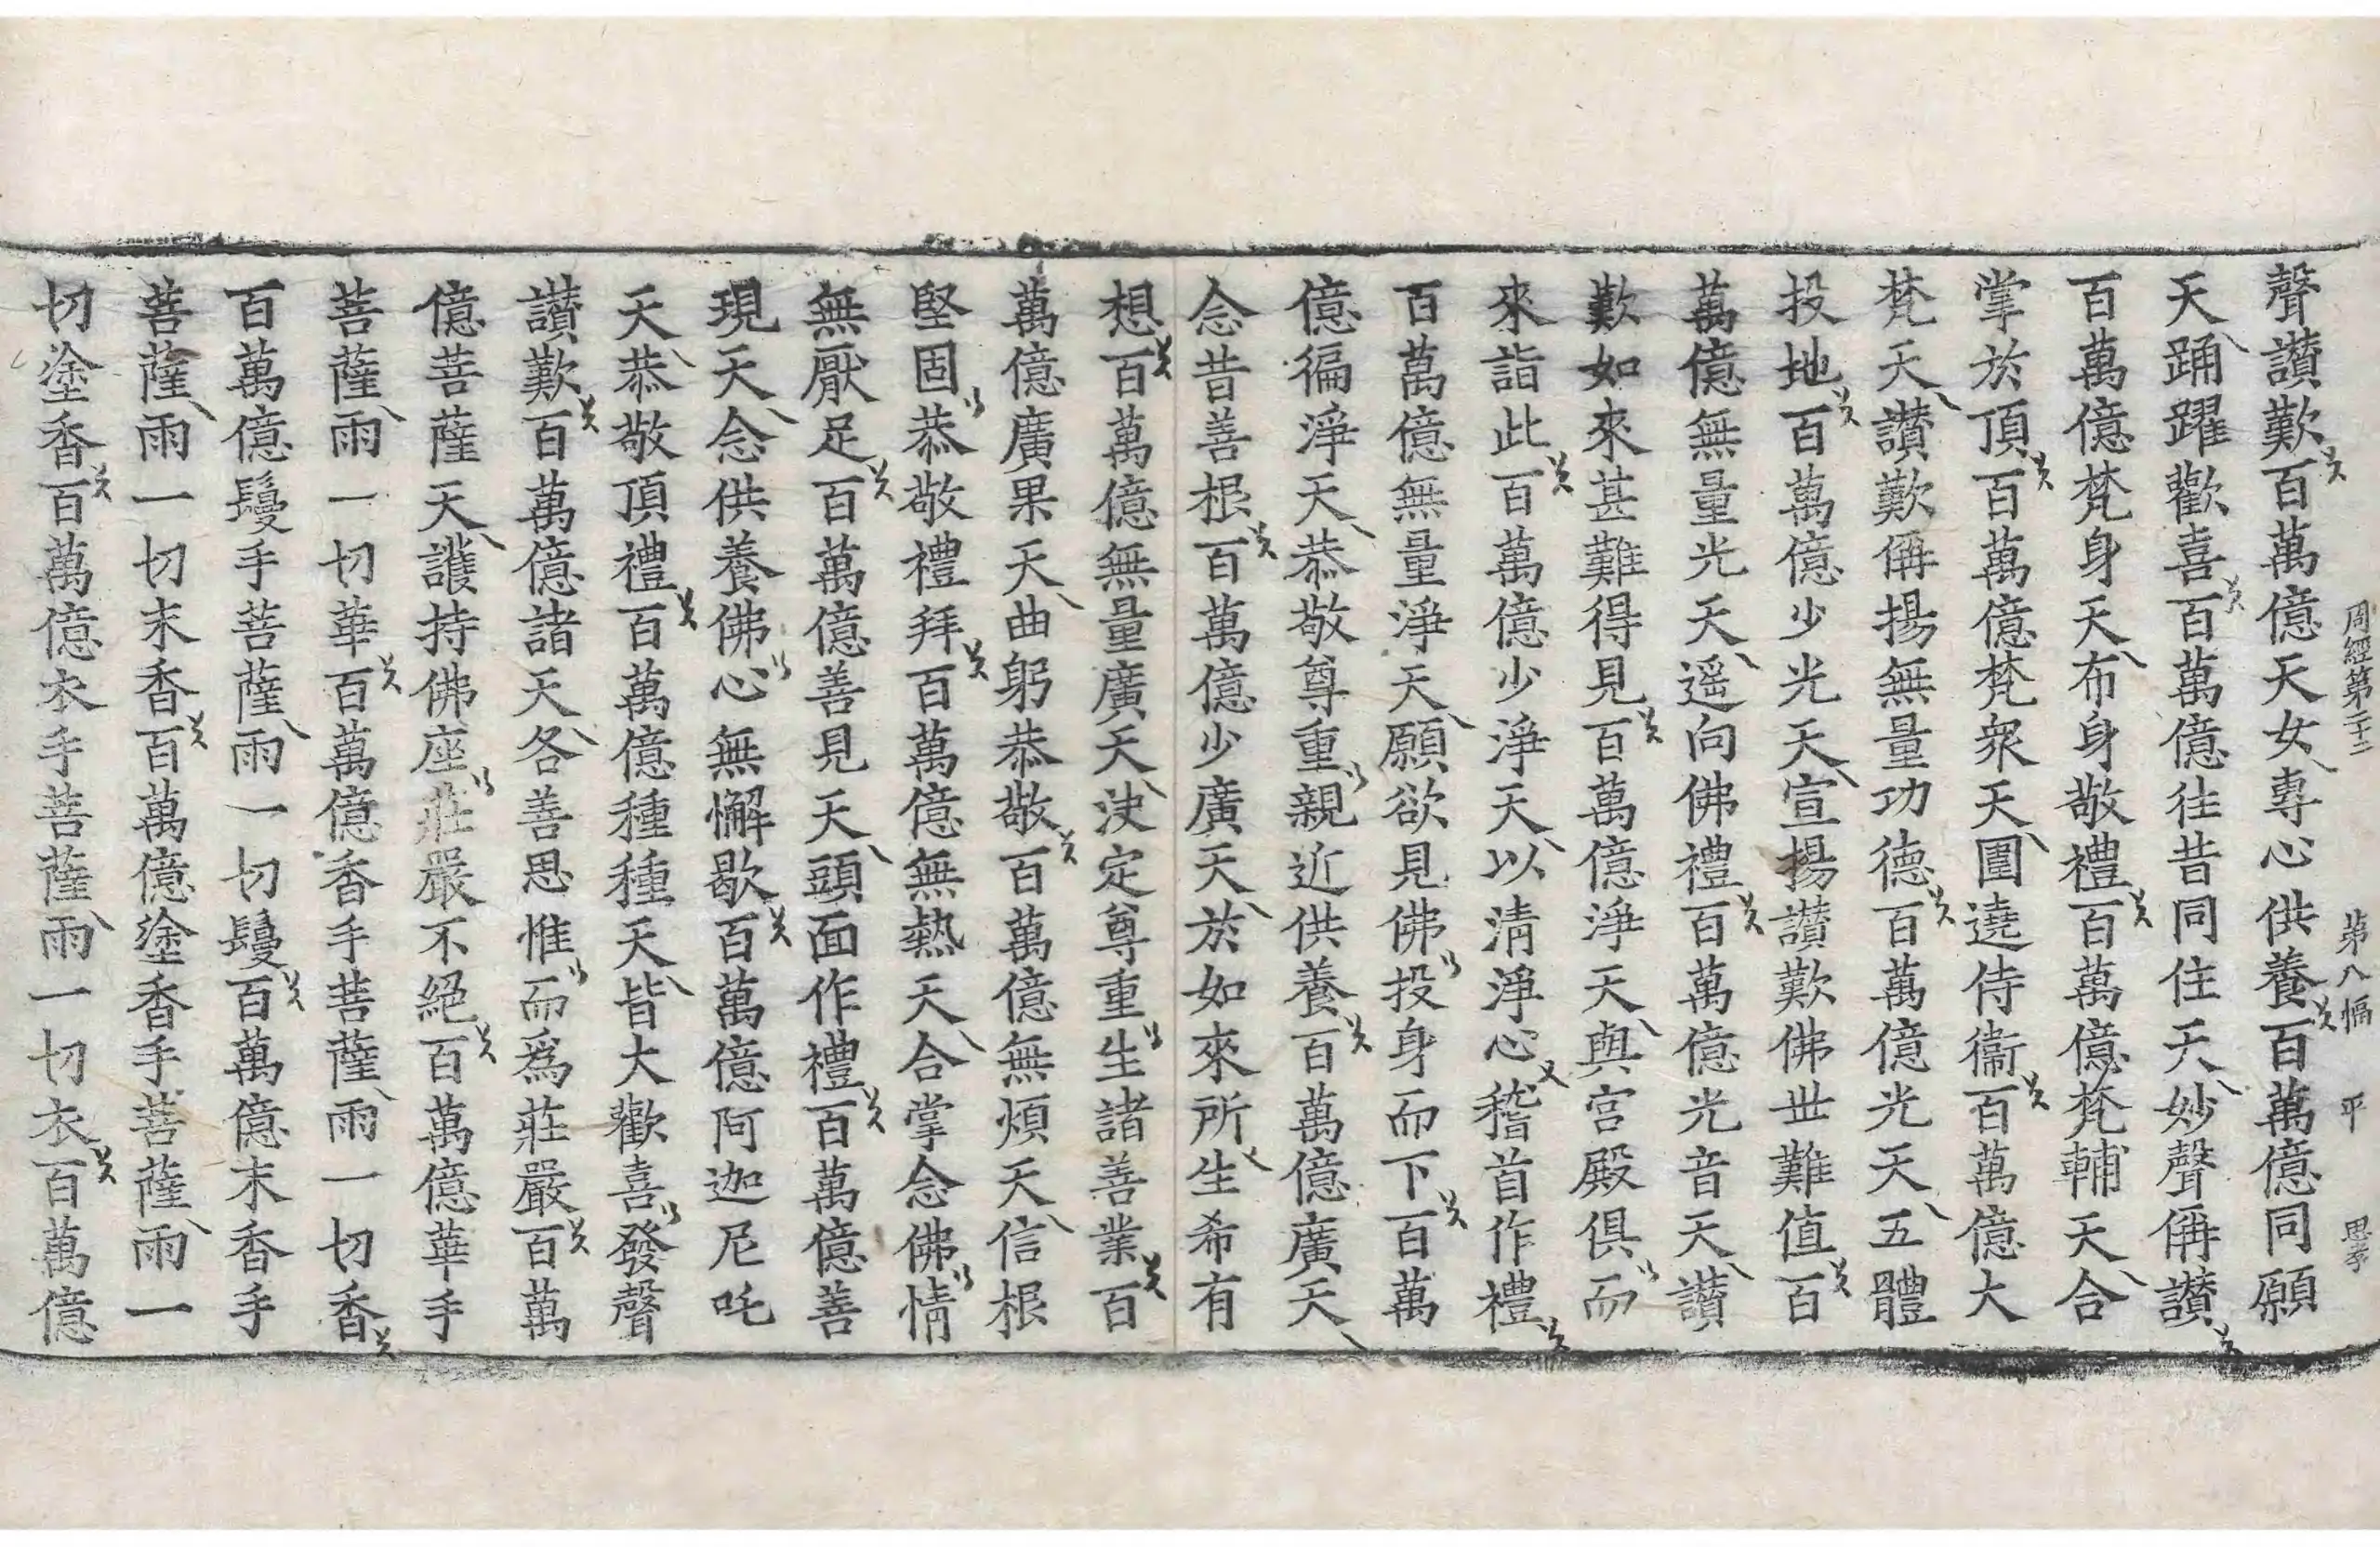 周經第二十二　第八幅　平　思孝
聲讃歎百萬億天女專心供養百萬億同願
天踊躍歡喜百萬億往昔同住天妙聲稱讃
百萬億梵身天布身敬禮百萬億梵輔天合
掌於頂百萬億梵衆天圍遶侍衞百萬億大
梵天讃歎稱揚無量功德百萬億光天五體
投地百萬億少光天宣揚讃歎佛世難值百
萬億無量光天遥向佛禮百萬億光音天讃
歎如來甚難得見百萬億淨天與宮殿俱而
來詣此百萬億少淨天以清淨心稽首作禮
百萬億無量淨天願欲見佛投身而下百萬
億徧淨天恭敬尊重親近供養百萬億廣天
念昔善根百萬億少廣天於如來所生希有
想百萬億無量廣天決定尊重生諸善業百
萬億廣果天曲躬恭敬百萬億無煩天信根
堅固恭敬禮拜百萬億無熱天合掌念佛情
無厭足百萬億善見天頭面作禮百萬億善
現天念供養佛心無懈歇百萬億阿迦尼吒
天恭敬頂禮百萬億種種天皆大歡喜發聲
讃歎百萬億諸天各善思惟而爲莊嚴百萬
億菩薩天護持佛座莊嚴不絕百萬億華手
菩薩雨一切華百萬億香手菩薩雨一切香
百萬億鬘手菩薩雨一切鬘百萬億末香手
菩薩雨一切末香百萬億塗香手菩薩雨一
切塗香百萬億衣手菩薩雨一切衣百萬億